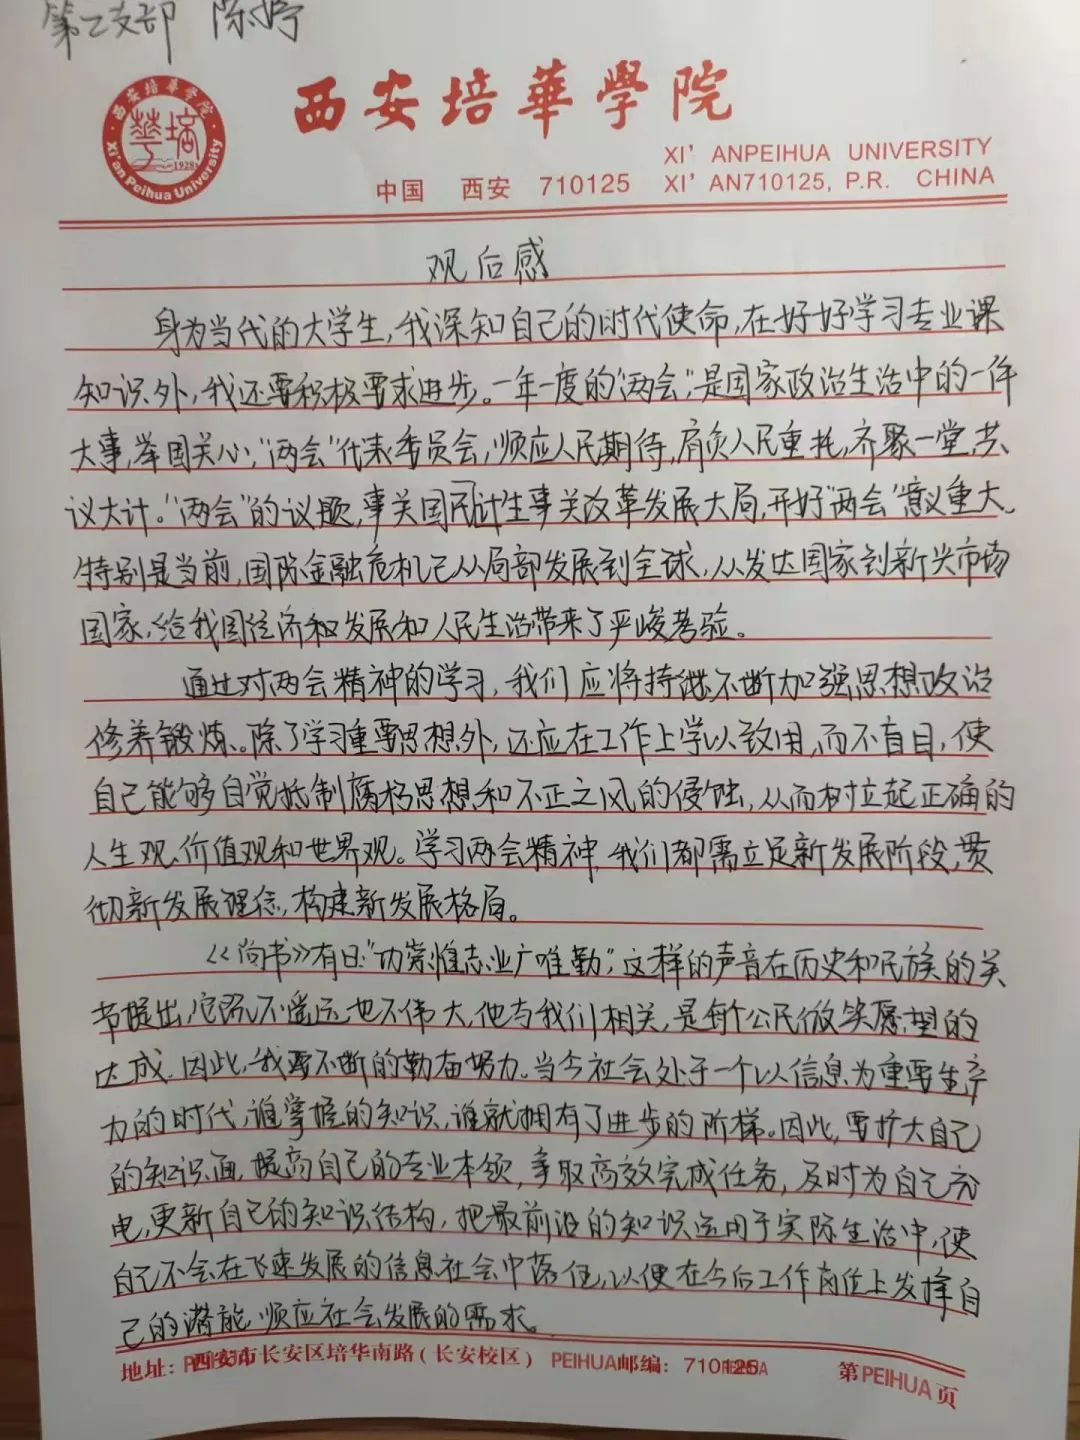 第二支部 陈婷
西安培華學院
西安培華學院
華培
1928
Xi'an Peihua University
XI' ANPEIHUA UNIVERSITY
中国 西安 710125 XI' AN710125, P.R. CHINA
观后感
身为当代的大学生,我深知自己的时代使命,在好好学习专业课
知识外,我还要积极要求进步。一年一度的"两会",是国家政治生活中的一件
大事,举国关心,"两会"代表委员会,顺应人民期待,肩负人民重托,齐聚一堂,共
议大计。"两会"的议题,事关国民计生事关改革发展大局,开好"两会"意义重大。
特别是当前,国际金融危机已从局部发展到全球,从发达国家到新兴市场
国家,给我国经济和发展和人民生活带来了严峻考验。
通过对两会精神的学习,我们应将持继不断加强思想政治
修养锻炼。除了学习重要思想外,还应在工作上学以致用,而不盲目,使
自己能够自觉抵制腐朽思想和不正之风的侵蚀,从而树立起正确的
人生观、价值观和世界观。学习两会精神,我们都需立足新发展阶段,贯
彻新发展理念,构建新发展格局。
《尚书》有曰:"功崇惟志业广唯勤",这样的声音在历史和民族的关
节提出,它既不遥远也不伟大,他与我们相关,是每个公民做筑愿望的
达成。因此,我要不断的勤奋努力。当今社会处于一个以信息为重要生产
力的时代,谁掌握的知识,谁就拥有了进步的阶梯。因此,要扩大自己
的知识面,提高自己的专业本领,争取高效完成任务,及时为自己充
电,更新自己的知识结构,把最前沿的知识运用于实际生活中,使
自己不会在飞速发展的信息社会中落伍,以便在今后工作岗位上发挥自
己的潜能,顺应社会发展的需求。
地址:西安市长安区培华南路(长安校区) PEIHUA邮编:710125 第PEIHUA页